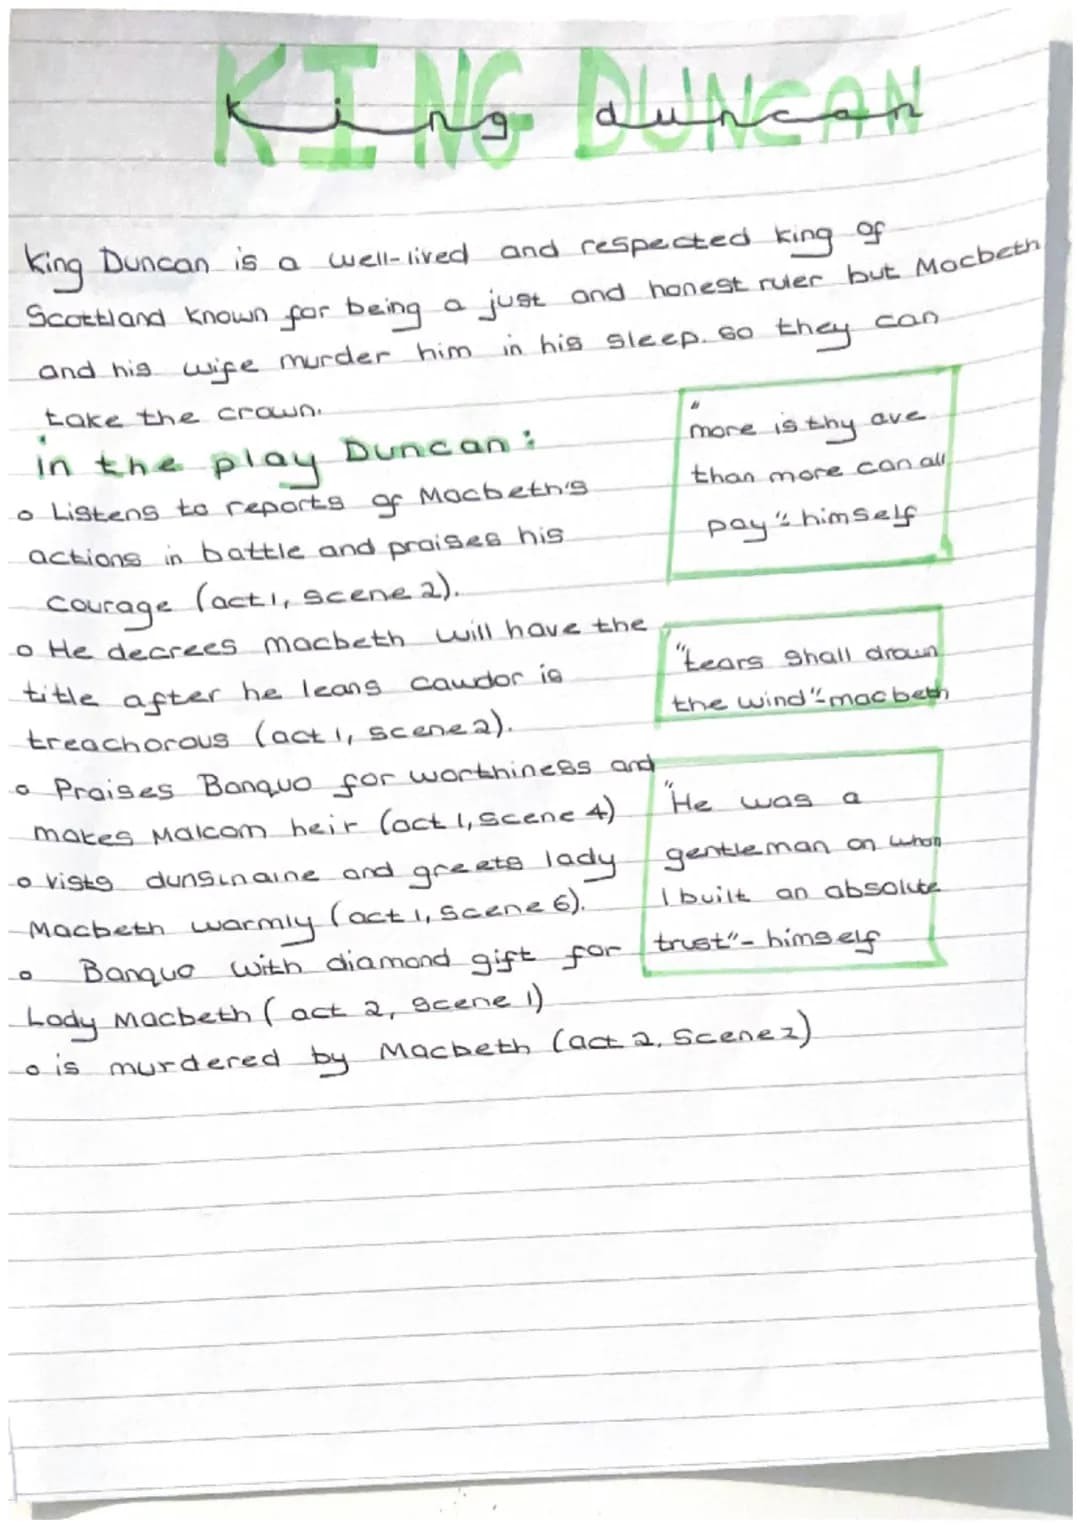 KING DUNCAN
king duncan
king Duncan is a well-lived and respected king of
Scottland known for being a just and honest ruler but Macbeth
and his wife murder him in his sleep. so they can
take the crown.
in the play Duncan:
o Listens to reports of Macbeth's
actions in battle and praises his
courage (act 1, scene 2).
o He decrees macbeth will have the
title after he leans cawdor is
treachorous (act 1, scene 2).
o Praises Banquo for worthiness and
makes Malcom heir (act 1, scene 4)
o vists dunsinaine and greets lady
Macbeth warmly (act 1, scene 6).
o Banquo with diamond gift for
Lady Macbeth (act 2, scene 1)
o is murdered by Macbeth (act 2, Scene 2)
"more is thy ave
than more can all
pay"- himself
"tears shall drown
the wind"- macbeth
"He was a
gentleman on whom
I built an absolute
trust"- himself